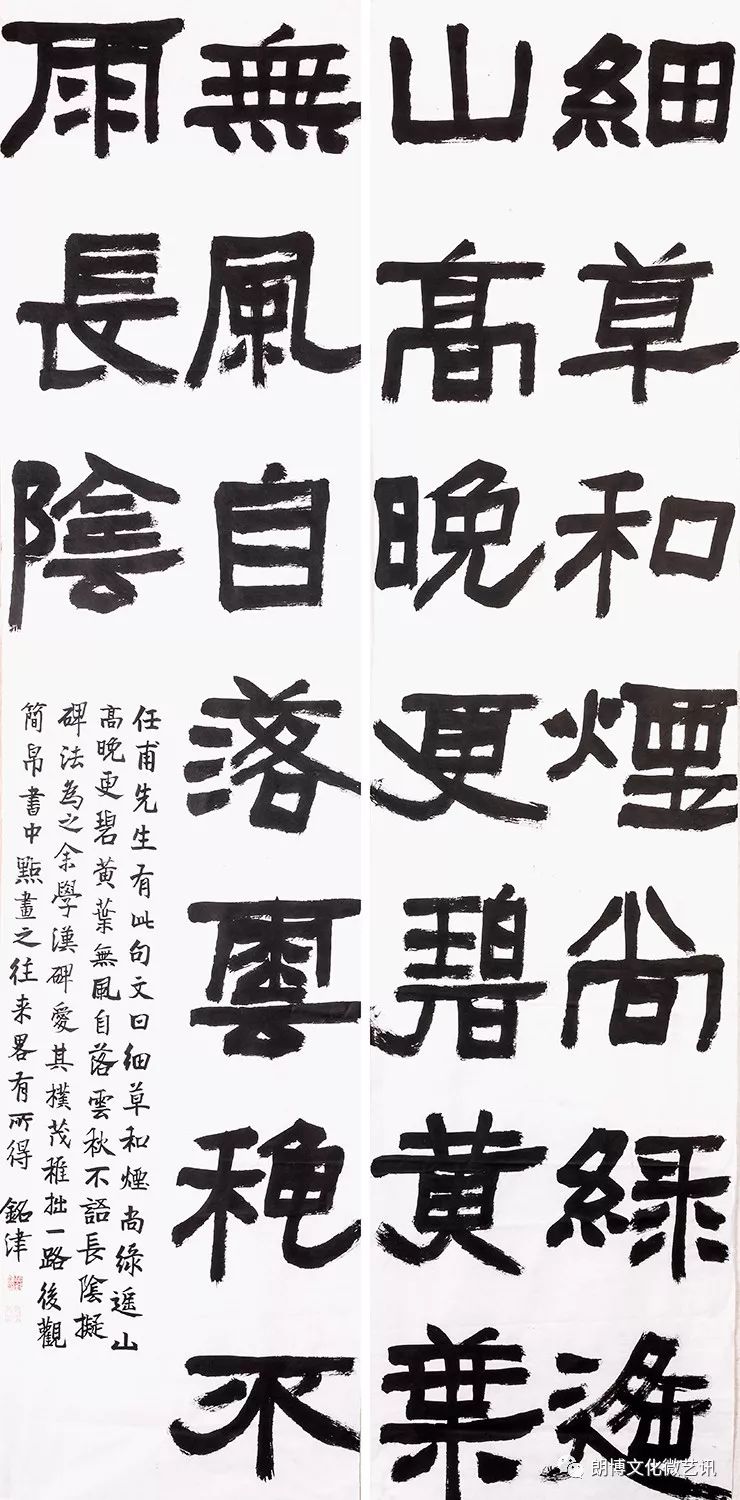 細草和煙尚綠遙
山髙晚更碧黃葉
無風自落雲穐不
雨長陰
任甫先生有此句文曰細草和煙尚綠遥山
高晚更碧黃葉無風自落雲秋不語長陰擬
碑法為之余學漢碑愛其樸茂稚拙一路後觀
簡帛書中點畫之往来畧有所得 銘津
朗博文化微艺讯